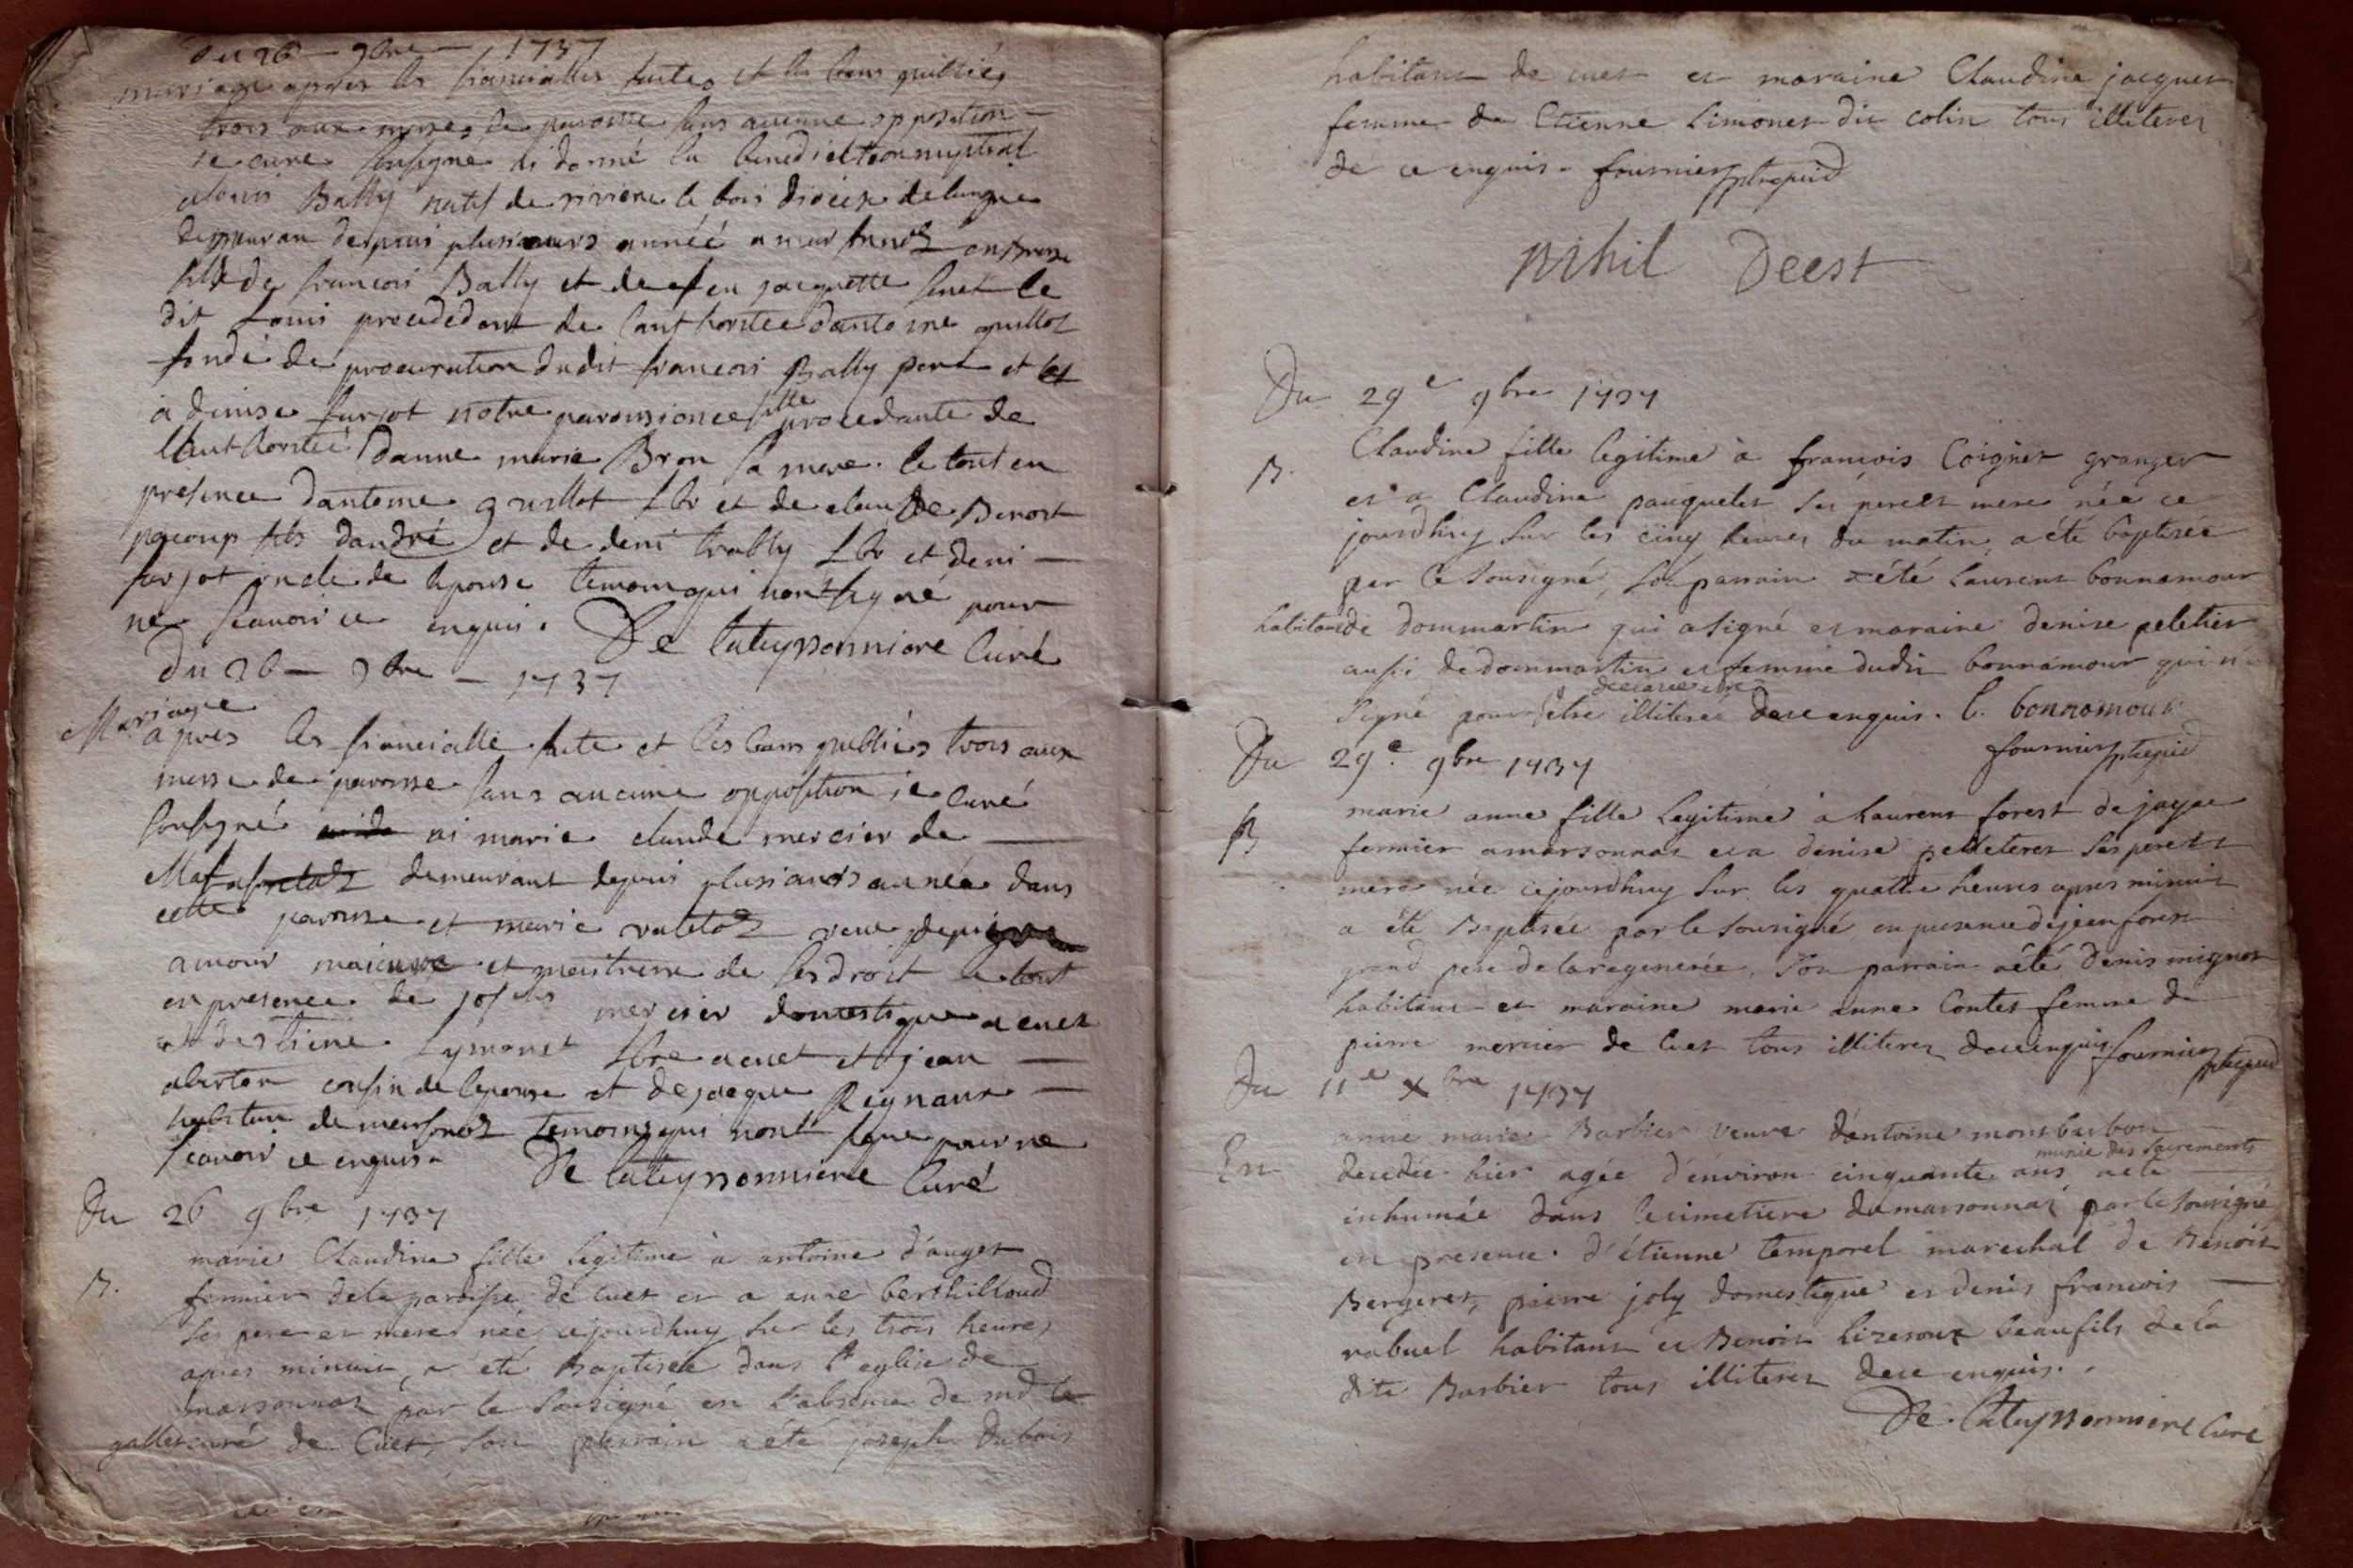 du 26 - 9bre - 1737
mariage apres les fiancialles faites et les bans publiés
trois aux messes de paroisse sans aucune opposition -
je curé soussigné ai donné la benediction nuptial
a louis Bally natif de riviere le bois diocese de langre
demeuran derpuis plusieurs année a marsonas en Bresse
fils de francois Bally et de feu jacquette le
dit Louis procededant de lauthoritee dantoine guillot
fondé de procuration dudit francois Bally pere et
a denise furjot notre paroissienee fille procedante de
lauthoritée danne marie Bron sa mere. le tout en
presence dantoine guillot Lbr et de claude Benoit
pacoup fils dandré et de deni trably Lbr et deni -
furjot oncle de lepouse temoin qui nont signé pour
ne scavoir ce enquis. De lateyssonniere Curé
Du 26 - 9bre - 1737
Mariage
apres les fiancialle faite et les bans publiés trois aux
messe de paroisse sans aucune opposition je Curé
soussigné ai marie claude mercier de
demeurant depuis plusieurs année dans
cette paroisse et marie veuve
amour maieure et maitresse de ses droit le tout
en presence de joseph mercier domestique a cuet
et destiene Lymonet Lbre a cuet et jean -
cousin de lepouse et de jacque Reynaux -
habitan de marsonas temoins qui nont signe pour ne
scavoir ce enquis. De lateyssonniere Curé
Du 26 9bre 1737
marie Claudine fille legitime à antoine d'auger
B. fermier dela paroisse de Cuet et a anne berthilloud
ses pere et mere née cejourdhuy sur les trois heures
apres minuit, a été Baptisée dans l'eglise de
marsonnas par le sousigné en l'absence de mr le
gallet curé de Cuet, son parrain a été joseph Dubois
habitant de cuet et maraine Claudine jacquet
femme de Etienne Limonet dit colin tous illiteres
de ce enquis. fournier
Nihil Deest
Du 29e 9bre 1737
Claudine fille legitime à françois Coignet granger
B. et a Claudine pauquelet ses pere et mere née ce
jourdhuy sur les cinq heures du matin, a été baptisée
par le sousigné, son parrain a été Laurent bonnamour
habitant de dommartin qui a signé et maraine denise peletier
aussi de dommartin et femme dudit bonnamour qui n'a
signé pour declaré etre illiteree de ce enquis. l. bonnamour
Du 29e. 9bre 1737 fournier
marie anne fille legitime à Laurent forest de jayac
B fermier a marsonnas et a denise pelleteret ses pere et
mere née cejourdhuy sur les quatre heures apres minuit
a été Baptisée par le sousigné en presence de jean forest
grand pere de la regenerée. son parrain a été denis mignot
habitant et maraine marie anne Contet femme de
pierre mercier de Cuet tous illiteres de ce enquis fournier
Du 11e xbre 1737
anne marie Barbier veuve d'antoine montbarbon
En decedée hier agée d'environ cinquante ans munie des sacrements a été
inhumée dans le cimetiere de marsonnas par le sousigné
en presence. d'étienne temporel marechal de Benoit
Bergeret, pierre joly domestique et denis francois -
rabuel habitant et Benoit beaufils de la
dite Barbier tous illiteres de ce enquis.
De lateyssonniere Curé